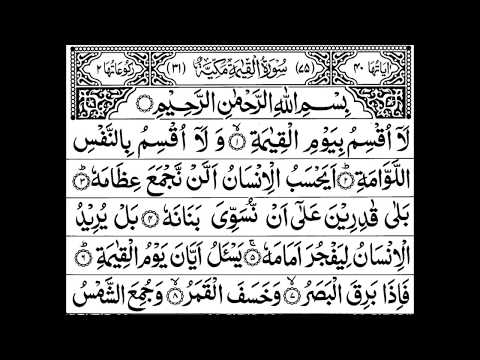 اٰیاتها ۴۰ (۷۵) سُوْرَةُ الْقِيٰمَةِ مَكِّيَّةٌ (۳۱) رکوعاتها ۲
بِسْمِ اللّٰهِ الرَّحْمٰنِ الرَّحِيْمِ
لَاۤ اُقْسِمُ بِيَوْمِ الْقِيٰمَةِ ۙ﴿۱﴾ وَ لَاۤ اُقْسِمُ بِالنَّفْسِ
اللَّوَّامَةِ ﴿۲﴾ اَيَحْسَبُ الْاِنْسَانُ اَلَّنْ نَّجْمَعَ عِظَامَهٗ ﴿۳﴾
بَلٰى قٰدِرِيْنَ عَلٰۤى اَنْ نُّسَوِّىَ بَنَانَهٗ ﴿۴﴾ بَلْ يُرِيْدُ
الْاِنْسَانُ لِيَفْجُرَ اَمَامَهٗ ﴿۵﴾ يَسْـَٔلُ اَيَّانَ يَوْمُ الْقِيٰمَةِ ﴿۶﴾
فَاِذَا بَرِقَ الْبَصَرُ ﴿۷﴾ وَخَسَفَ الْقَمَرُ ﴿۸﴾ وَجُمِعَ الشَّمْسُ